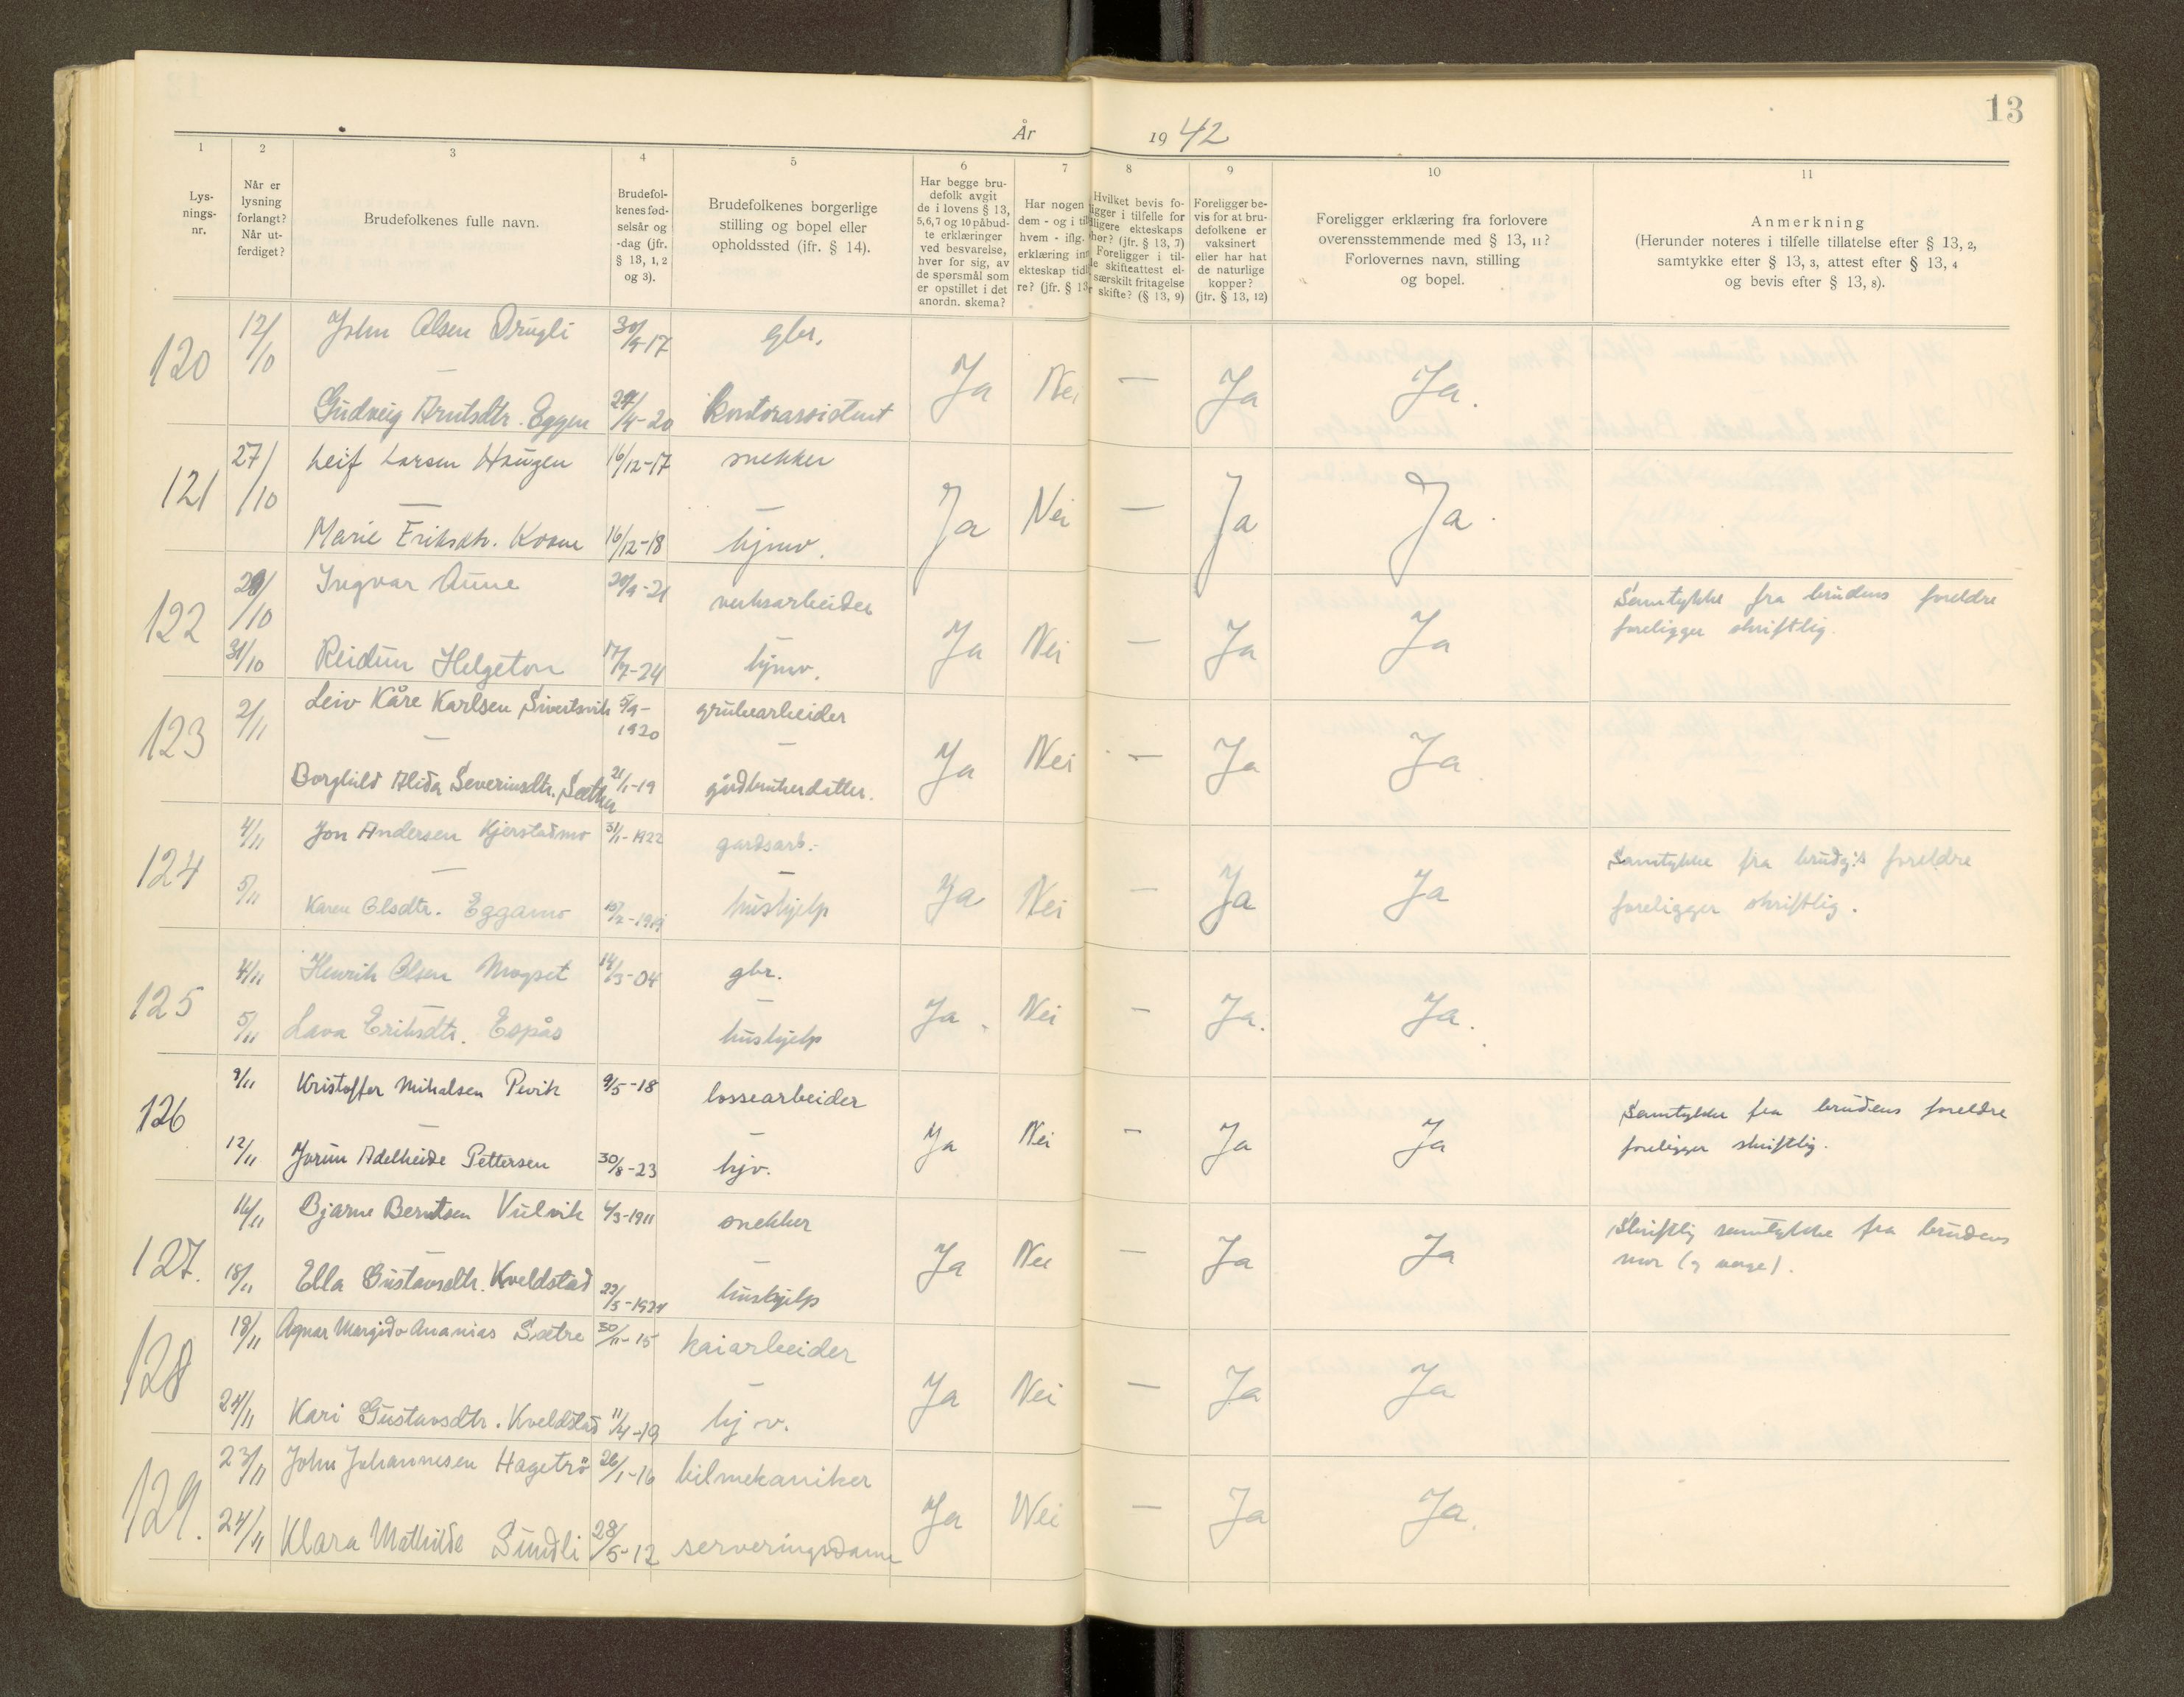 13
År 1942
1 2 3 4 5 6 7 8 9 10 11
Lys-
nings-
nr.
Når er
lysning
forlangt?
Når ut-
ferdiget?
Brudefolkenes fulle navn.
Brudefol-
kenes fød-
selsår og
-dag (jfr.
§ 13, 1, 2
og 3).
Brudefolkenes borgerlige
stilling og bopel eller
opholdssted (ifr. § 14).
Har begge bru-
defolk avgit
de i lovens § 13,
5, 6, 7 og 10 påbud-
te erklæringer
ved besvarelse,
hver for sig, av
de spørsmål som
er opstillet i det
anordn. skema?
Har nogen
dem - og i til
hvem - iflg.
erklæring inn
ekteskap tidl
re? (jfr. § 13
Hvilket bevis fo-
ligger i tilfelle for
ligere ekteskaps
hør? (jfr. § 13, 7)
Foreligger i til-
le skifteattest el-
særskilt fritagelse
r skifte? (§ 13, 9)
Foreligger be-
vis for at bru-
defolkene er
vaksinert
eller har hat
de naturlige
kopper?
(jfr. § 13, 12)
Foreligger erklæring fra forlovere
overensstemmende med § 13, 11?
Forlovernes navn, stilling
og bopel.
Anmerkning
(Herunder noteres i tilfelle tillatelse efter § 13, 2,
samtykke efter § 13, 3, attest efter § 13, 4
og bevis efter § 13, 8).
120 12/10 John Olsen Drugli 30/9-17 gbr.
Ja Nei — Ja Ja.
Gudveig Arntsdtr. Eggen 24/4-20 kontorassistent
121 27/10 Leif Larsen Haugen 16/12-17 snekker
— — Ja Nei — Ja Ja.
Marie Eriksdtr. Kosne 16/12-18 hjmv.
122 29/10 Ingvar Aune 20/9-21 verksarbeider Samtykke fra brudens foreldre
foreligger skriftlig.
31/10 Reidun Helgeton 17/7-24 hjmv. Ja Nei — Ja Ja
123 2/11 Leiv Kåre Karlsen Sivertsvik 5/9-1920 grubearbeider
— — Ja Nei — Ja Ja
Borghild Alida Severinsdtr. Sæther 21/1-19 gårdbrukerdatter.
124 4/11 Jon Andersen Kjerstadmo 31/1-1922 gardsarb.- Samtykke fra brudg:s foreldre
— — Ja Nei — Ja Ja
5/11 Karen Olsdtr. Eggamo 10/2-1919 hushjelp foreligger skriftlig.
125 4/11 Henrik Olsen Mogset 14/3-04 gbr.
Ja. Nei — Ja. Ja.
5/11 Lava Eriksdtr. Espås hushjelp
126 9/11 Kristoffer Mikalsen Pevik 9/5-18 lossearbeider Samtykke fra brudens foreldre
— — Ja Nei — Ja Ja foreligger skriftlig.
12/11 Jorun Adelheide Pettersen 30/8-23 hjv.
127. 16/11 Bjarne Berntsen Vulvik 4/3-1911 snekker Skriftlig samtykke fra brudens
Ja Nei — Ja Ja mor (og verge).
18/11 Ella Gustavsdtr. Kveldstad 22/5-1924 hushjelp
128 18/11 Agnar Margido Ananias Sætre 30/11-15 kaiarbeider
— Ja Nei — Ja Ja
24/11 Kari Gustavsdtr. Kveldstad 11/4-19 hjv.
129. 23/11 John Johannesen Hagetrø 26/1-16 bilmekaniker
Ja Nei — Ja Ja.
24/11 Klara Mathilde Sundli 28/5-12 serveringsdame